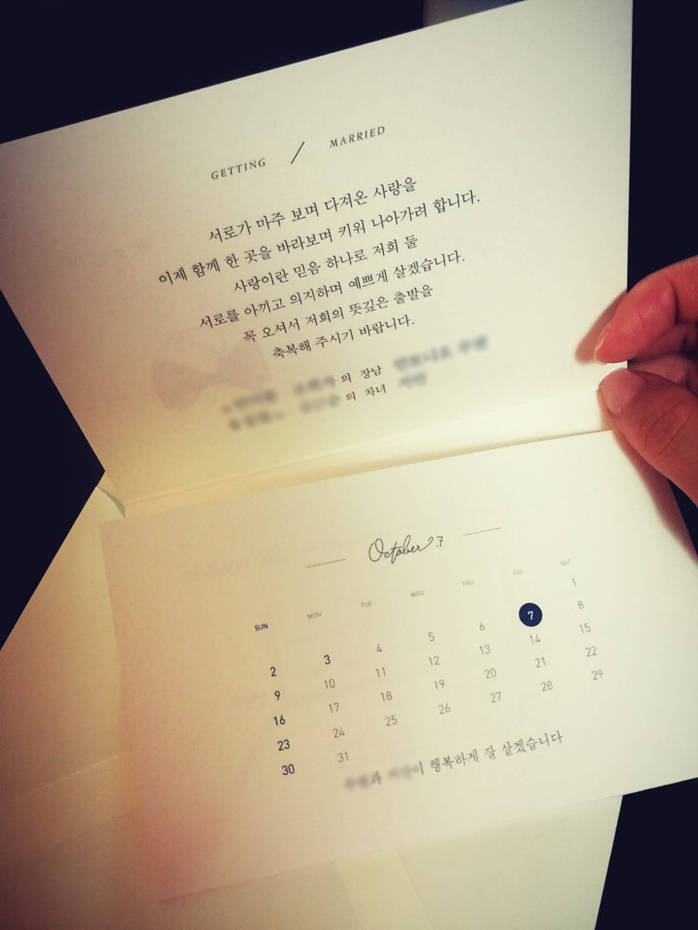 GETTING / MARRIED
서로가 마주 보며 다져온 사랑을
이제 함께 한 곳을 바라보며 키워 나아가려 합니다.
사랑이란 믿음 하나로 저희 둘
서로를 아끼고 의지하며 예쁘게 살겠습니다.
꼭 오셔서 저희의 뜻깊은 출발을
축복해 주시기 바랍니다.
의 장남
의 차녀
October.7
SUN MON TUE WED THU FRI SAT
1
2 3 4 5 6 7 8
9 10 11 12 13 14 15
16 17 18 19 20 21 22
23 24 25 26 27 28 29
30 31
과 이 행복하게 잘 살겠습니다